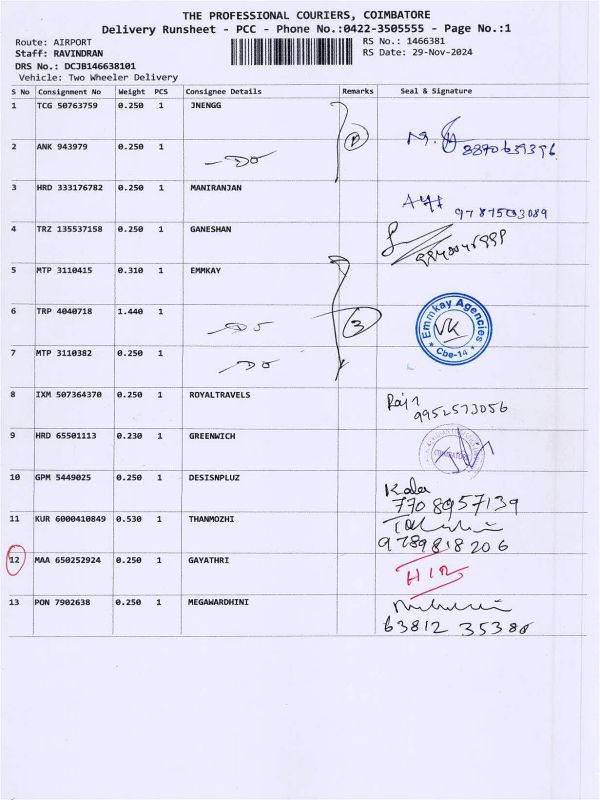 THE PROFESSIONAL COURIERS, COIMBATORE
Delivery Runsheet - PCC - Phone No.:0422-3505555 - Page No.:1
Route: AIRPORT RS No.: 1466381
Staff: RAVINDRAN RS Date: 29-Nov-2024
DRS No.: DCJB146638101
Vehicle: Two Wheeler Delivery
S No Consignment No Weight PCS Consignee Details Remarks Seal & Signature
1 TCG 50763759 0.250 1 JNENGG
2 ANK 943979 0.250 1
3 HRD 333176782 0.250 1 MANIRANJAN
4 TRZ 135537158 0.250 1 GANESHAN
5 MTP 3110415 0.310 1 EMMKAY
6 TRP 4040718 1.440 1 3
Emmkay Agencies
Cbe-14
7 MTP 3110382 0.250 1
8 IXM 507364370 0.250 1 ROYALTRAVELS
9952573056
9 HRD 65501113 0.230 1 GREENWICH
10 GPM 5449025 0.250 1 DESISNPLUZ Kala
7708957139
11 KUR 6000410849 0.530 1 THANMOZHI
9789818206
12 MAA 650252924 0.250 1 GAYATHRI
13 PON 7902638 0.250 1 MEGAWARDHINI
63812 35386